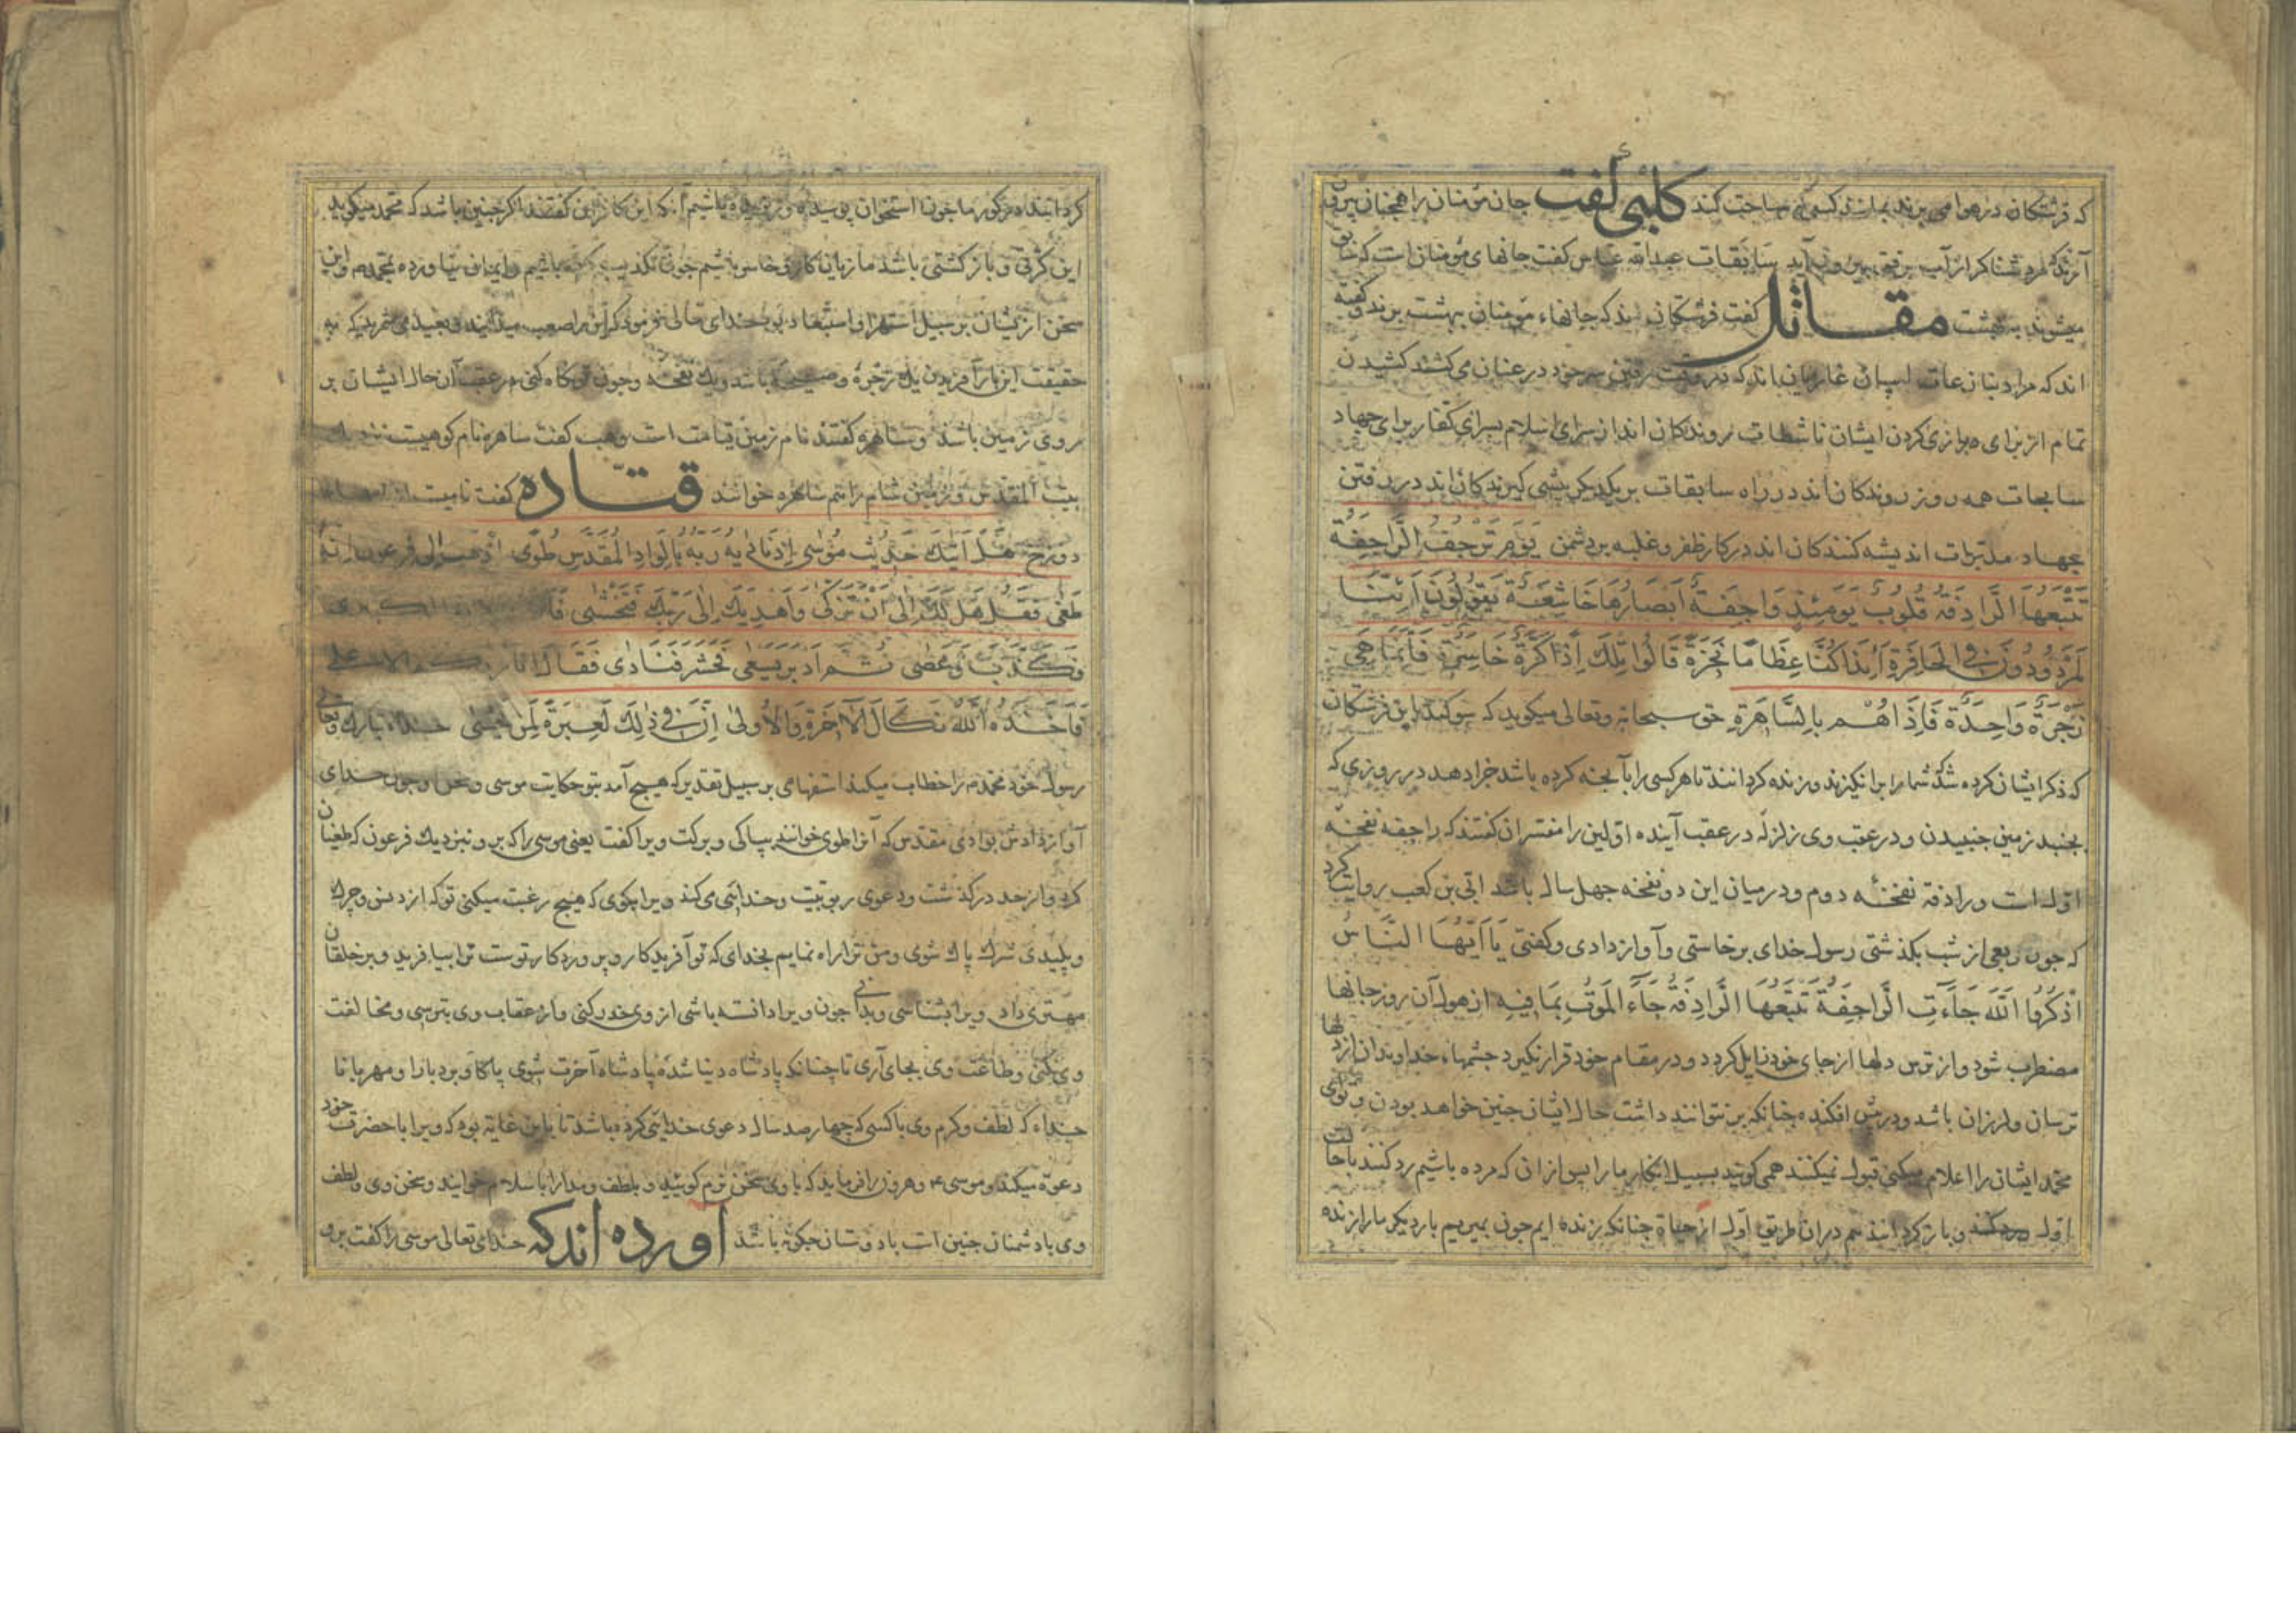 که فرشتکان در هوا می برند بمانند کسی که سباحت کند کلبی کفت جان مؤمنان را همچنان بیرون
آرند که مرد شناکر از آب برفق بیرون آید سابقات عبدالله عباس کفت جانهای مؤمنان است که سابق
میشوند به بهشت مقاتل کفت فرشتکان اند که جانهاء مؤمنان ببهشت برند و کفته
اند که مراد بنازعات اسپان غازیان اند که در وقت رفتن سر خود در عنان می کشند کشیدن
تمام از برای دراز کردن ایشان ناشطات روندکان اند از سرای اسلام بسرای کفار برای جهاد
سابحات همه روز روندکان اند در راه سابقات بر یکدیکر پیشی کیرندکان اند در رفتن
بجهاد مدبرات اندیشه کنندکان اند در کار ظفر و غلبه بر دشمن يَوْمَ تَرْجُفُ الرَّاجِفَةُ
تَتْبَعُهَا الرَّادِفَةُ قُلُوبٌ يَوْمَئِذٍ وَاجِفَةٌ أَبْصَارُهَا خَاشِعَةٌ يَقُولُونَ أَئِنَّا
لَمَرْدُودُونَ فِي الْحَافِرَةِ أَئِذَا كُنَّا عِظَامًا نَخِرَةً قَالُوا تِلْكَ إِذًا كَرَّةٌ خَاسِرَةٌ فَإِنَّمَا هِيَ
زَجْرَةٌ وَاحِدَةٌ فَإِذَا هُمْ بِالسَّاهِرَةِ حق سبحانه وتعالی میکوید که سوکند باین فرشتکان
که ذکر ایشان کرده شد که شما را برانکیزند و زنده کردانند تا هر کسی را بآنچه کرده باشد جزا دهد در روزی که
بجنبد زمین جنبیدن و در عقب وی زلزله در عقب آینده اولین را مفسران کفتند که راجفه نفخه
اول است و رادفه نفخهٔ دوم و در میان این دو نفخه چهل سال باشد ابی بن کعب روایت کرد
که چون ربعی از شب بکذشتی رسول خدای برخاستی و آواز دادی و کفتی يَا أَيُّهَا النَّاسُ
اُذْكُرُوا اللَّهَ جَاءَتِ الرَّاجِفَةُ تَتْبَعُهَا الرَّادِفَةُ جَاءَ الْمَوْتُ بِمَا فِيهِ از هول آن روز جانها
مضطرب شود و از ترس دلها از جای خود زایل کردد و در مقام خود قرار نکیرد چشمهاء خداوندان آن دلها
ترسان و لرزان باشد و در پیش افکنده چنانکه بر نتوانند داشت حال ایشان چنین خواهد بودن و توای
محمد ایشان را اعلام میکنی قبول نمیکنند همی کویند بسبیل انکار ما را پس از ان که مرده باشیم رد کنند با حالت
اول و باز کردانند هم دران طریق اول از حیاة چنانکه زنده ایم چون بمیریم بار دیکر ما را زنده
کردانند در کور ما چون استخوان پوسیده و ریزیده باشیم آنکه این کافران کفتند اکر چنین باشد که محمد میکوید
این کرتی و باز کشتی باشد ما زیان کار و خاسر باشیم چون تکذیب کرده باشیم و ایمان نیاورده بمحمد و این
سخن از یشان بر سبیل استهزا و استبعاد بود خدای تعالی فرمود که این را صعب میدانید و بعید می شمرید که به
حقیقت این بار آفریدن یک زجره و صیحه باشد و یک نفخه و چون نکاه کنی در عقب آن حال ایشان بر
روی زمین باشند و ساهره کفتند نام زمین قیامت است وهب کفت ساهره نام کوهیست نزدیک
بیت المقدس و زمین شام را هم ساهره خوانند قتاده کفت نامیست از
دوزخ هَلْ أَتَاكَ حَدِيثُ مُوسَى إِذْ نَادَاهُ رَبُّهُ بِالْوَادِ الْمُقَدَّسِ طُوًى اذْهَبْ إِلَى فِرْعَوْنَ إِنَّهُ
طَغَى فَقُلْ هَلْ لَكَ إِلَى أَنْ تَزَكَّى وَأَهْدِيَكَ إِلَى رَبِّكَ فَتَخْشَى
فَكَذَّبَ وَعَصَى ثُمَّ أَدْبَرَ يَسْعَى فَحَشَرَ فَنَادَى فَقَالَ أَنَا رَبُّكُمُ الْأَعْلَى
فَأَخَذَهُ اللَّهُ نَكَالَ الْآخِرَةِ وَالْأُولَى إِنَّ فِي ذَلِكَ لَعِبْرَةً لِمَنْ يَخْشَى خداء تبارک وتعالی
رسول خود محمد م را خطاب میکند استفهامی بر سبیل تقدیر که هیچ آمد بتو حکایت موسی و چون خدای
آواز دادش بوادی مقدس که آنرا طوی خوانند بپاکی و برکت ویرا کفت یعنی موسی را که برو نزدیک فرعون که طغیان
کرد و از حد درکذشت و دعوی ربوبیت و خدایی می کند ویرا بکوی که هیچ رغبت میکنی تو که از دنس و چرک
و پلیدی شرک پاک شوی و من ترا راه نمایم بخدای که تو آفریدکار و پروردکار توست ترا بیافرید و بر خلقان
مهتری داد ویرا بشناسی و بدانی چون ویرا دانسته باشی از وی حذر کنی و از عقاب وی بترسی و مخالفت
وی نکنی و طاعت وی بجای آری تا چنانکه پادشاه دنیا شدهٔ پادشاه آخرت شوی پاکا و بردبارا و مهربانا
خداء که لطف و کرم وی با کسی که چهارصد سال دعوی خدایی کرده باشد تا باین غایه بود که ویرا با حضرت خود
دعوة میکند و موسی ع و هرون را فرماید که با وی سخن نرم کویید و بلطف و مدارا باسلام خوانید و سخن وی و لطف
وی با دشمنان چنین است با دوستان چکونه باشد آورده اند که خدای تعالی موسی را کفت برو